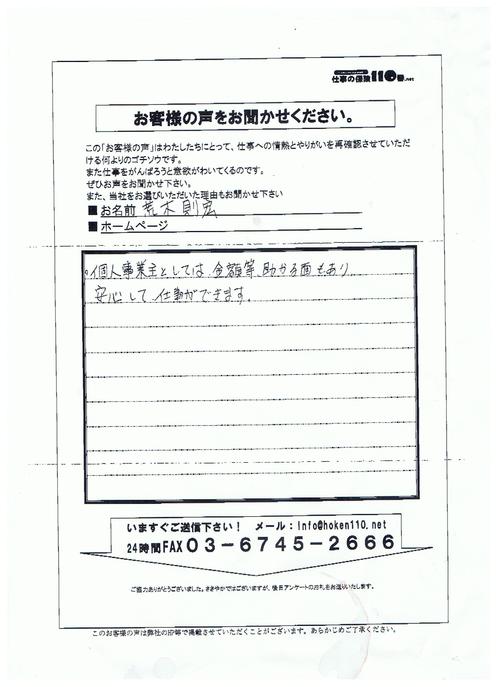 仕事の保険110番.net
お客様の声をお聞かせください。
この「お客様の声」はわたしたちにとって、仕事への情熱とやりがいを再確認させていただ
ける何よりのゴチソウです。
また仕事をがんばろうと意欲がわいてくるのです。
ぜひお声をお聞かせ下さい。
また、当社をお選びいただいた理由もお聞かせ下さい
■お名前 荒木則宏
■ホームページ
。個人事業主としては 金額等 助かる面もあり
安心して 仕事ができます。
いますぐご送信下さい! メール:info@hoken110.net
24時間FAX03-6745-2666
ご協力ありがとうございました。ささやかではございますが、後日アンケートのお礼をお送りいたします。
このお客様の声は弊社のHP等で掲載させていただくことがございます。あらかじめご了承ください。